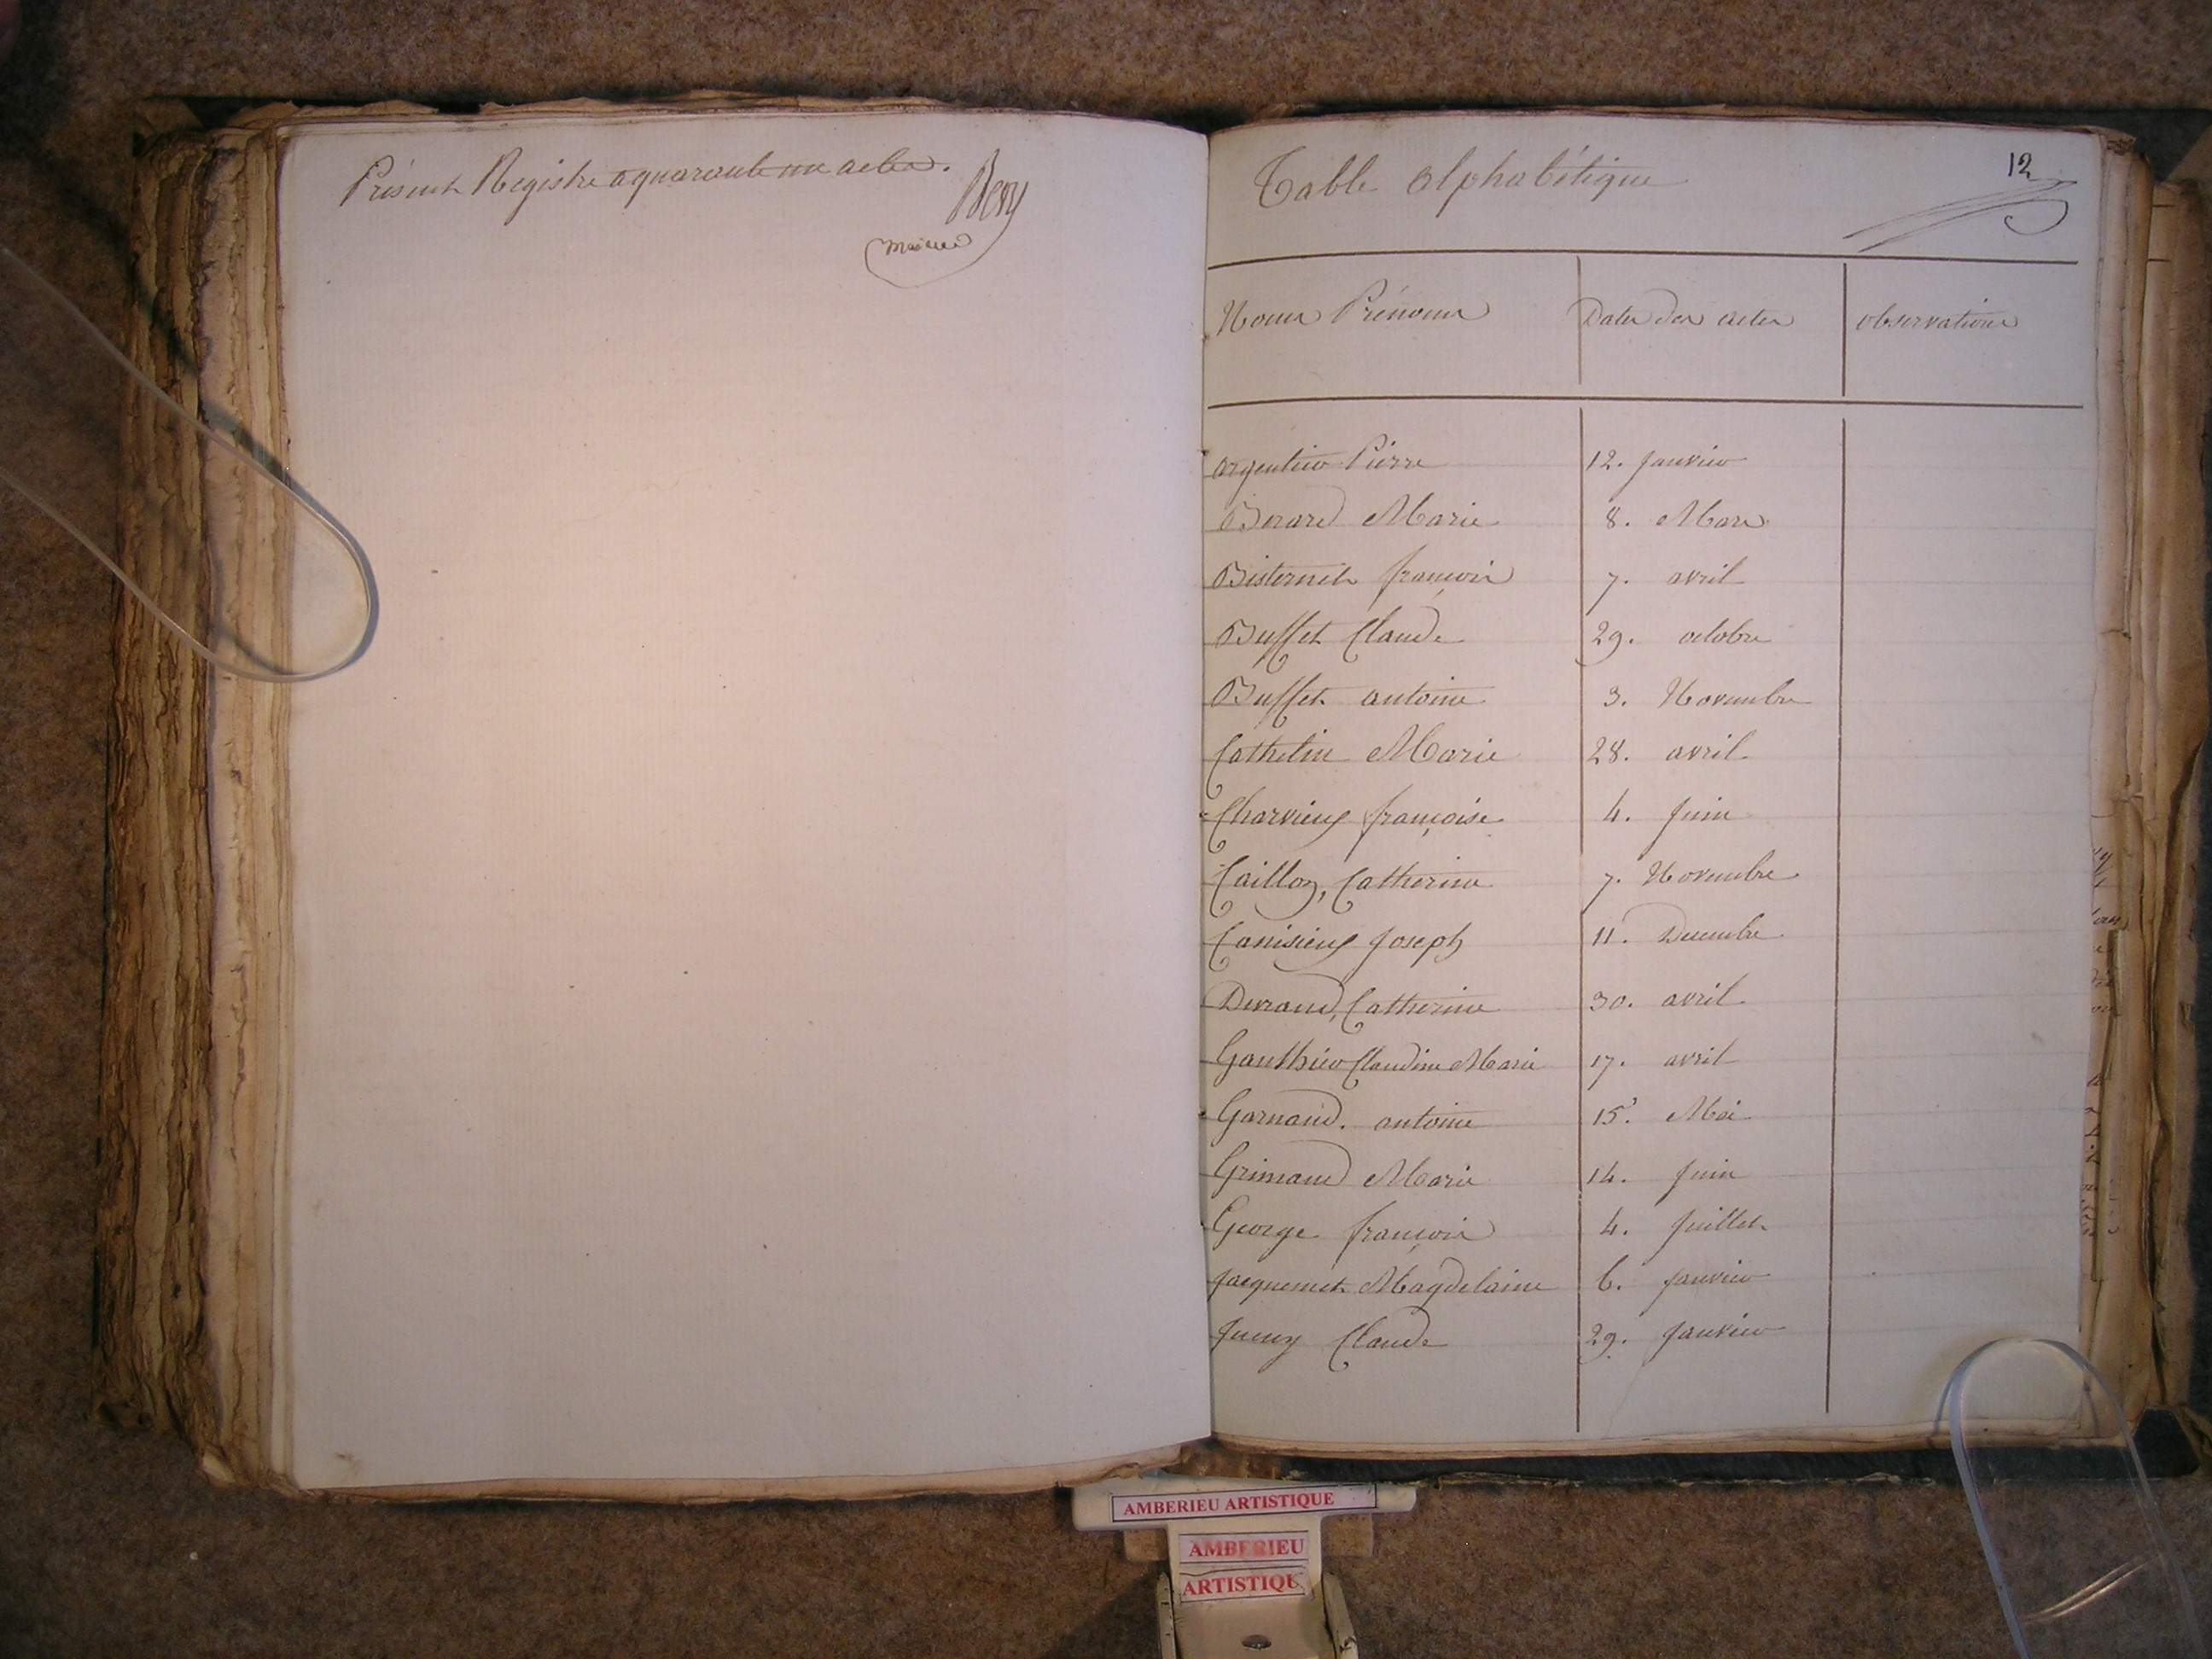 Présent Registre a quarante un actes.
Bery
maire
Table alphabétique
12
Noms Prénoms Dates des actes observations
argentier Pierre 12. janvier
Berard Marie 8. Mars
Bisternet françois 7. avril
Buffet Claude 29. octobre
Buffet antoine 3. Novembre
Cathelin Marie 28. avril
Charvieux françoise 4. Juin
Caillon, Catherine 7. Novembre
Canisieux Joseph 11. Decembre
Durand, Catherine 30. avril
Gauthier Claudine Marie 17. avril
Garnaud. antoine 15. Mai
Grimaud Marie 14. Juin
George françois 4. Juillet
Jacquemet Magdelaine 6. janvier
Claude 29. Janvier
AMBERIEU ARTISTIQUE
AMBERIEU
ARTISTIQU